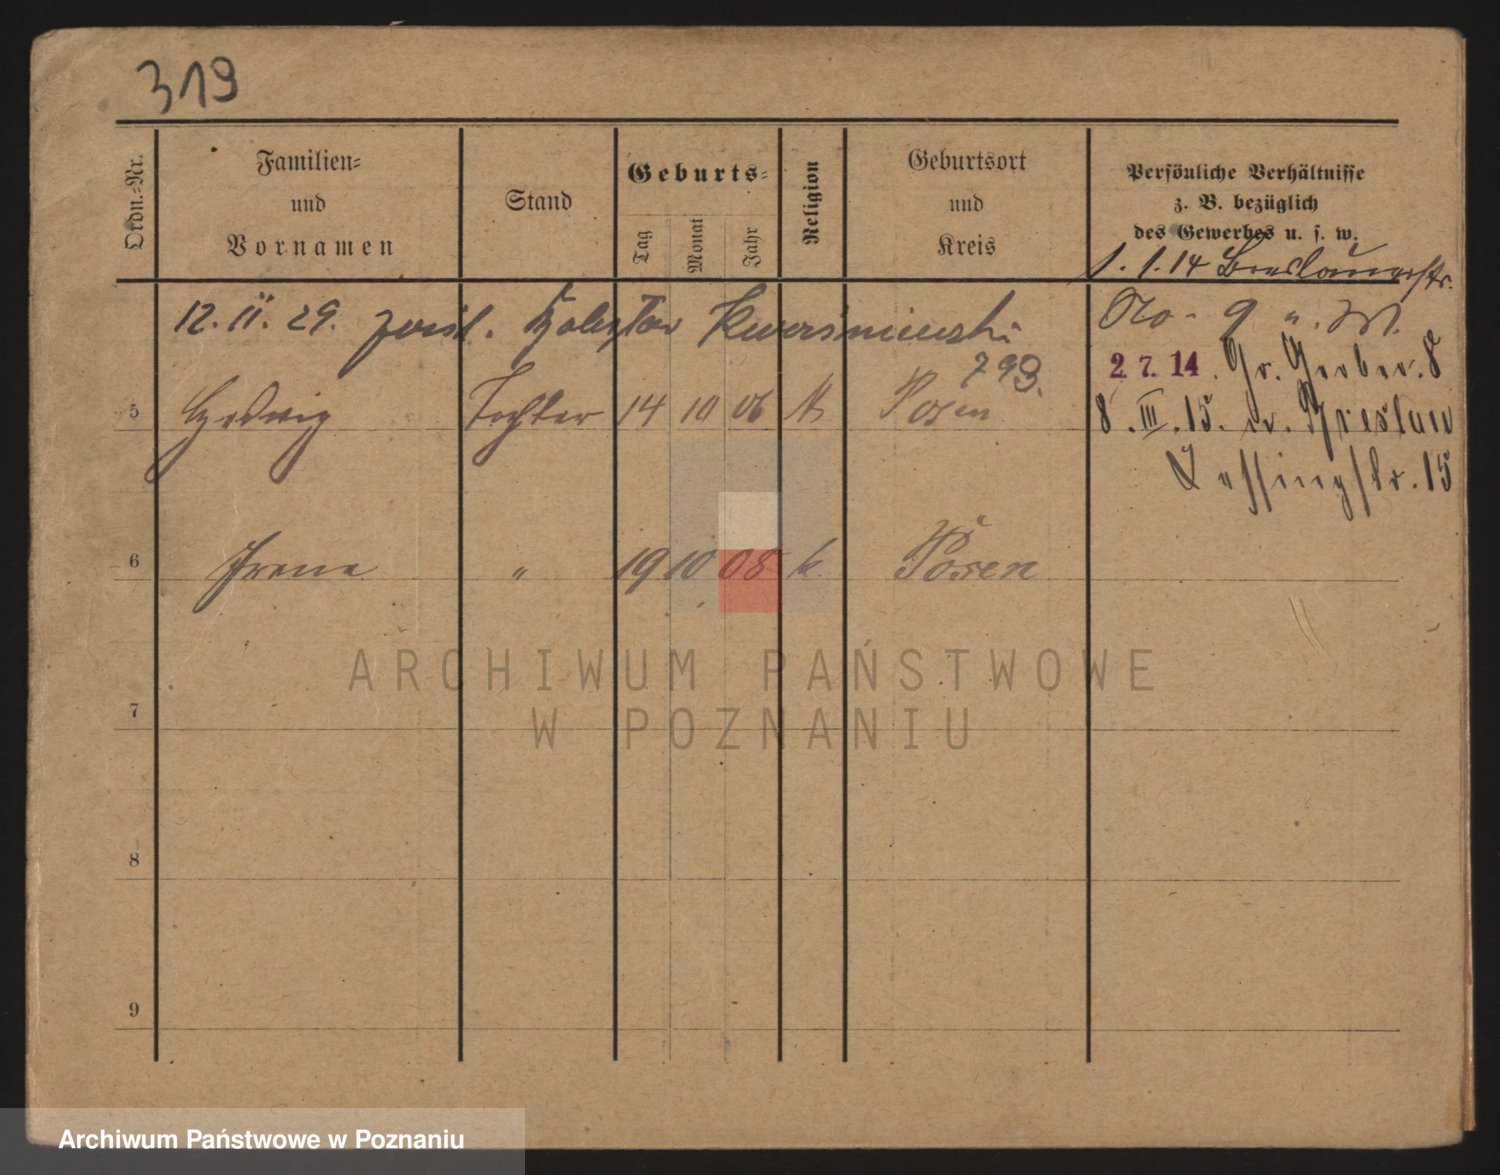 319
Ordn.-Nr.
Familien-
und
Vornamen
Stand
Geburts-
Tag
Monat
Jahr
Religion
Geburtsort
und
Kreis
Persönliche Verhältnisse
z. B. bezüglich
des Gewerbes u. s. w.
1. 1. 14 Breslauerstr.
12. II. 29.
No. 9
793.
2. 7. 14. Gr. Gerber. 8
5 Hedwig Tochter 14 10 06 k Posen
8. III. 15. Breslau
Lessingstr. 15
6 Irene " 19 10 08 k Posen
ARCHIWUM PAŃSTWOWE
W POZNANIU
7
8
9
Archiwum Państwowe w Poznaniu